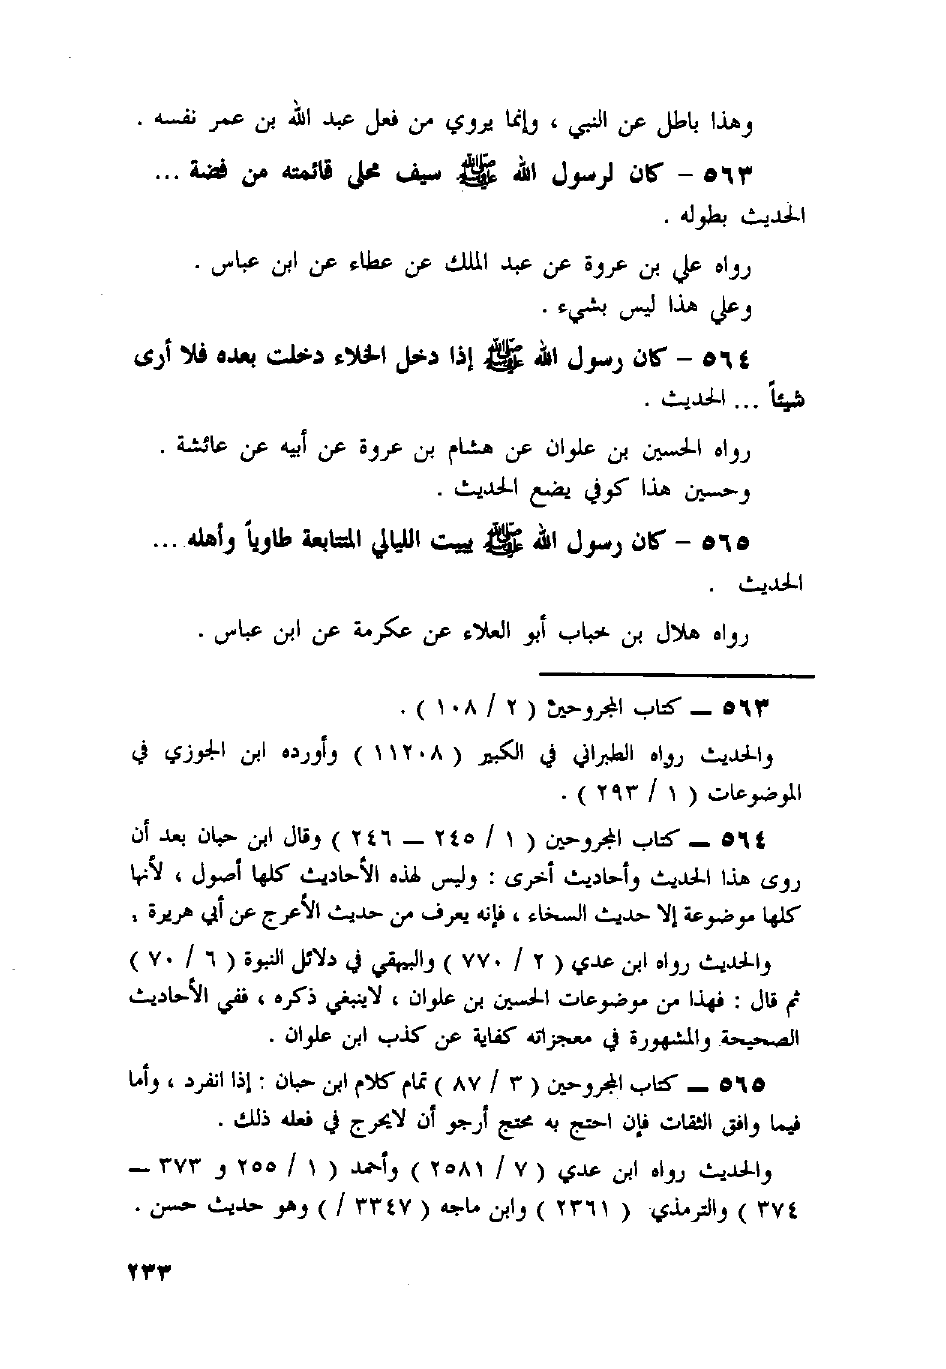 وهذا باطل عن النبي ، وإنما يروي من فعل عبد الله بن عمر نفسه .
٥٦٣ – كان لرسول الله ﷺ سيف محلى قائمته من فضة ...
الحديث بطوله .
رواه علي بن عروة عن عبد الملك عن عطاء عن ابن عباس .
وعلي هذا ليس بشيء .
٥٦٤ – كان رسول الله ﷺ إذا دخل الخلاء دخلت بعده فلا أرى
شيئاً ... الحديث .
رواه الحسين بن علوان عن هشام بن عروة عن أبيه عن عائشة .
وحسين هذا كوفي يضع الحديث .
٥٦٥ – كان رسول الله ﷺ يبيت الليالي المتتابعة طاوياً وأهله ...
الحديث .
رواه هلال بن خباب أبو العلاء عن عكرمة عن ابن عباس .
٥٦٣ ــ كتاب المجروحين ( ٢ / ١٠٨ ) .
والحديث رواه الطبراني في الكبير ( ١١٢٠٨ ) وأورده ابن الجوزي في
الموضوعات ( ١ / ٢٩٣ ) .
٥٦٤ ــ كتاب المجروحين ( ١ / ٢٤٥ ــ ٢٤٦ ) وقال ابن حبان بعد أن
روى هذا الحديث وأحاديث أخرى : وليس لهذه الأحاديث كلها أصول ، لأنها
كلها موضوعة إلا حديث السخاء ، فإنه يعرف من حديث الأعرج عن أبي هريرة .
والحديث رواه ابن عدي ( ٢ / ٧٧٠ ) والبيهقي في دلائل النبوة ( ٦ / ٧٠ )
ثم قال : فهذا من موضوعات الحسين بن علوان ، لاينبغي ذكره ، ففي الأحاديث
الصحيحة والمشهورة في معجزاته كفاية عن كذب ابن علوان .
٥٦٥ ــ كتاب المجروحين ( ٣ / ٨٧ ) تمام كلام ابن حبان : إذا انفرد ، وأما
فيما وافق الثقات فإن احتج به محتج أرجو أن لايحرج في فعله ذلك .
والحديث رواه ابن عدي ( ٧ / ٢٥٨١ ) وأحمد ( ١ / ٢٥٥ و ٣٧٣ ــ
٣٧٤ ) والترمذي ( ٢٣٦١ ) وابن ماجه ( ٣٣٤٧ / ) وهو حديث حسن .
٢٣٣